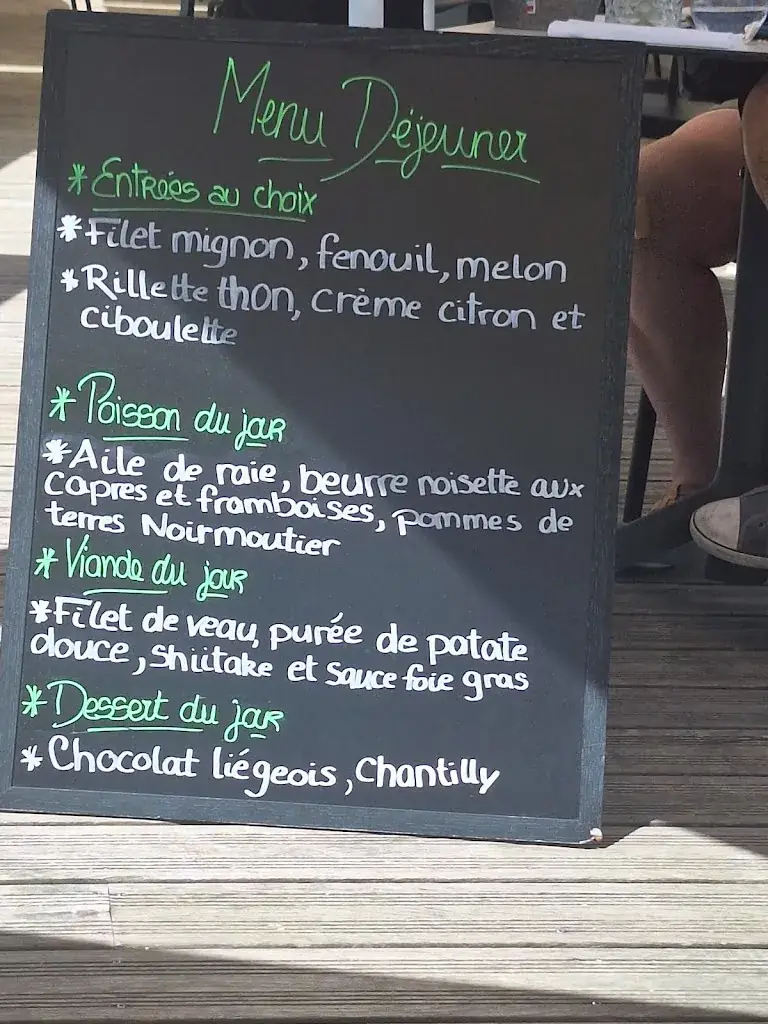 Menu Déjeuner
* Entrées au choix
* Filet mignon, fenouil, melon
* Rillette thon, crème citron et
ciboulette
* Poisson du jour
* Aile de raie, beurre noisette aux
capres et framboises, pommes de
terres Noirmoutier
* Viande du jour
* Filet de veau, purée de patate
douce, shiitake et sauce foie gras
* Dessert du jour
* Chocolat liégeois, Chantilly